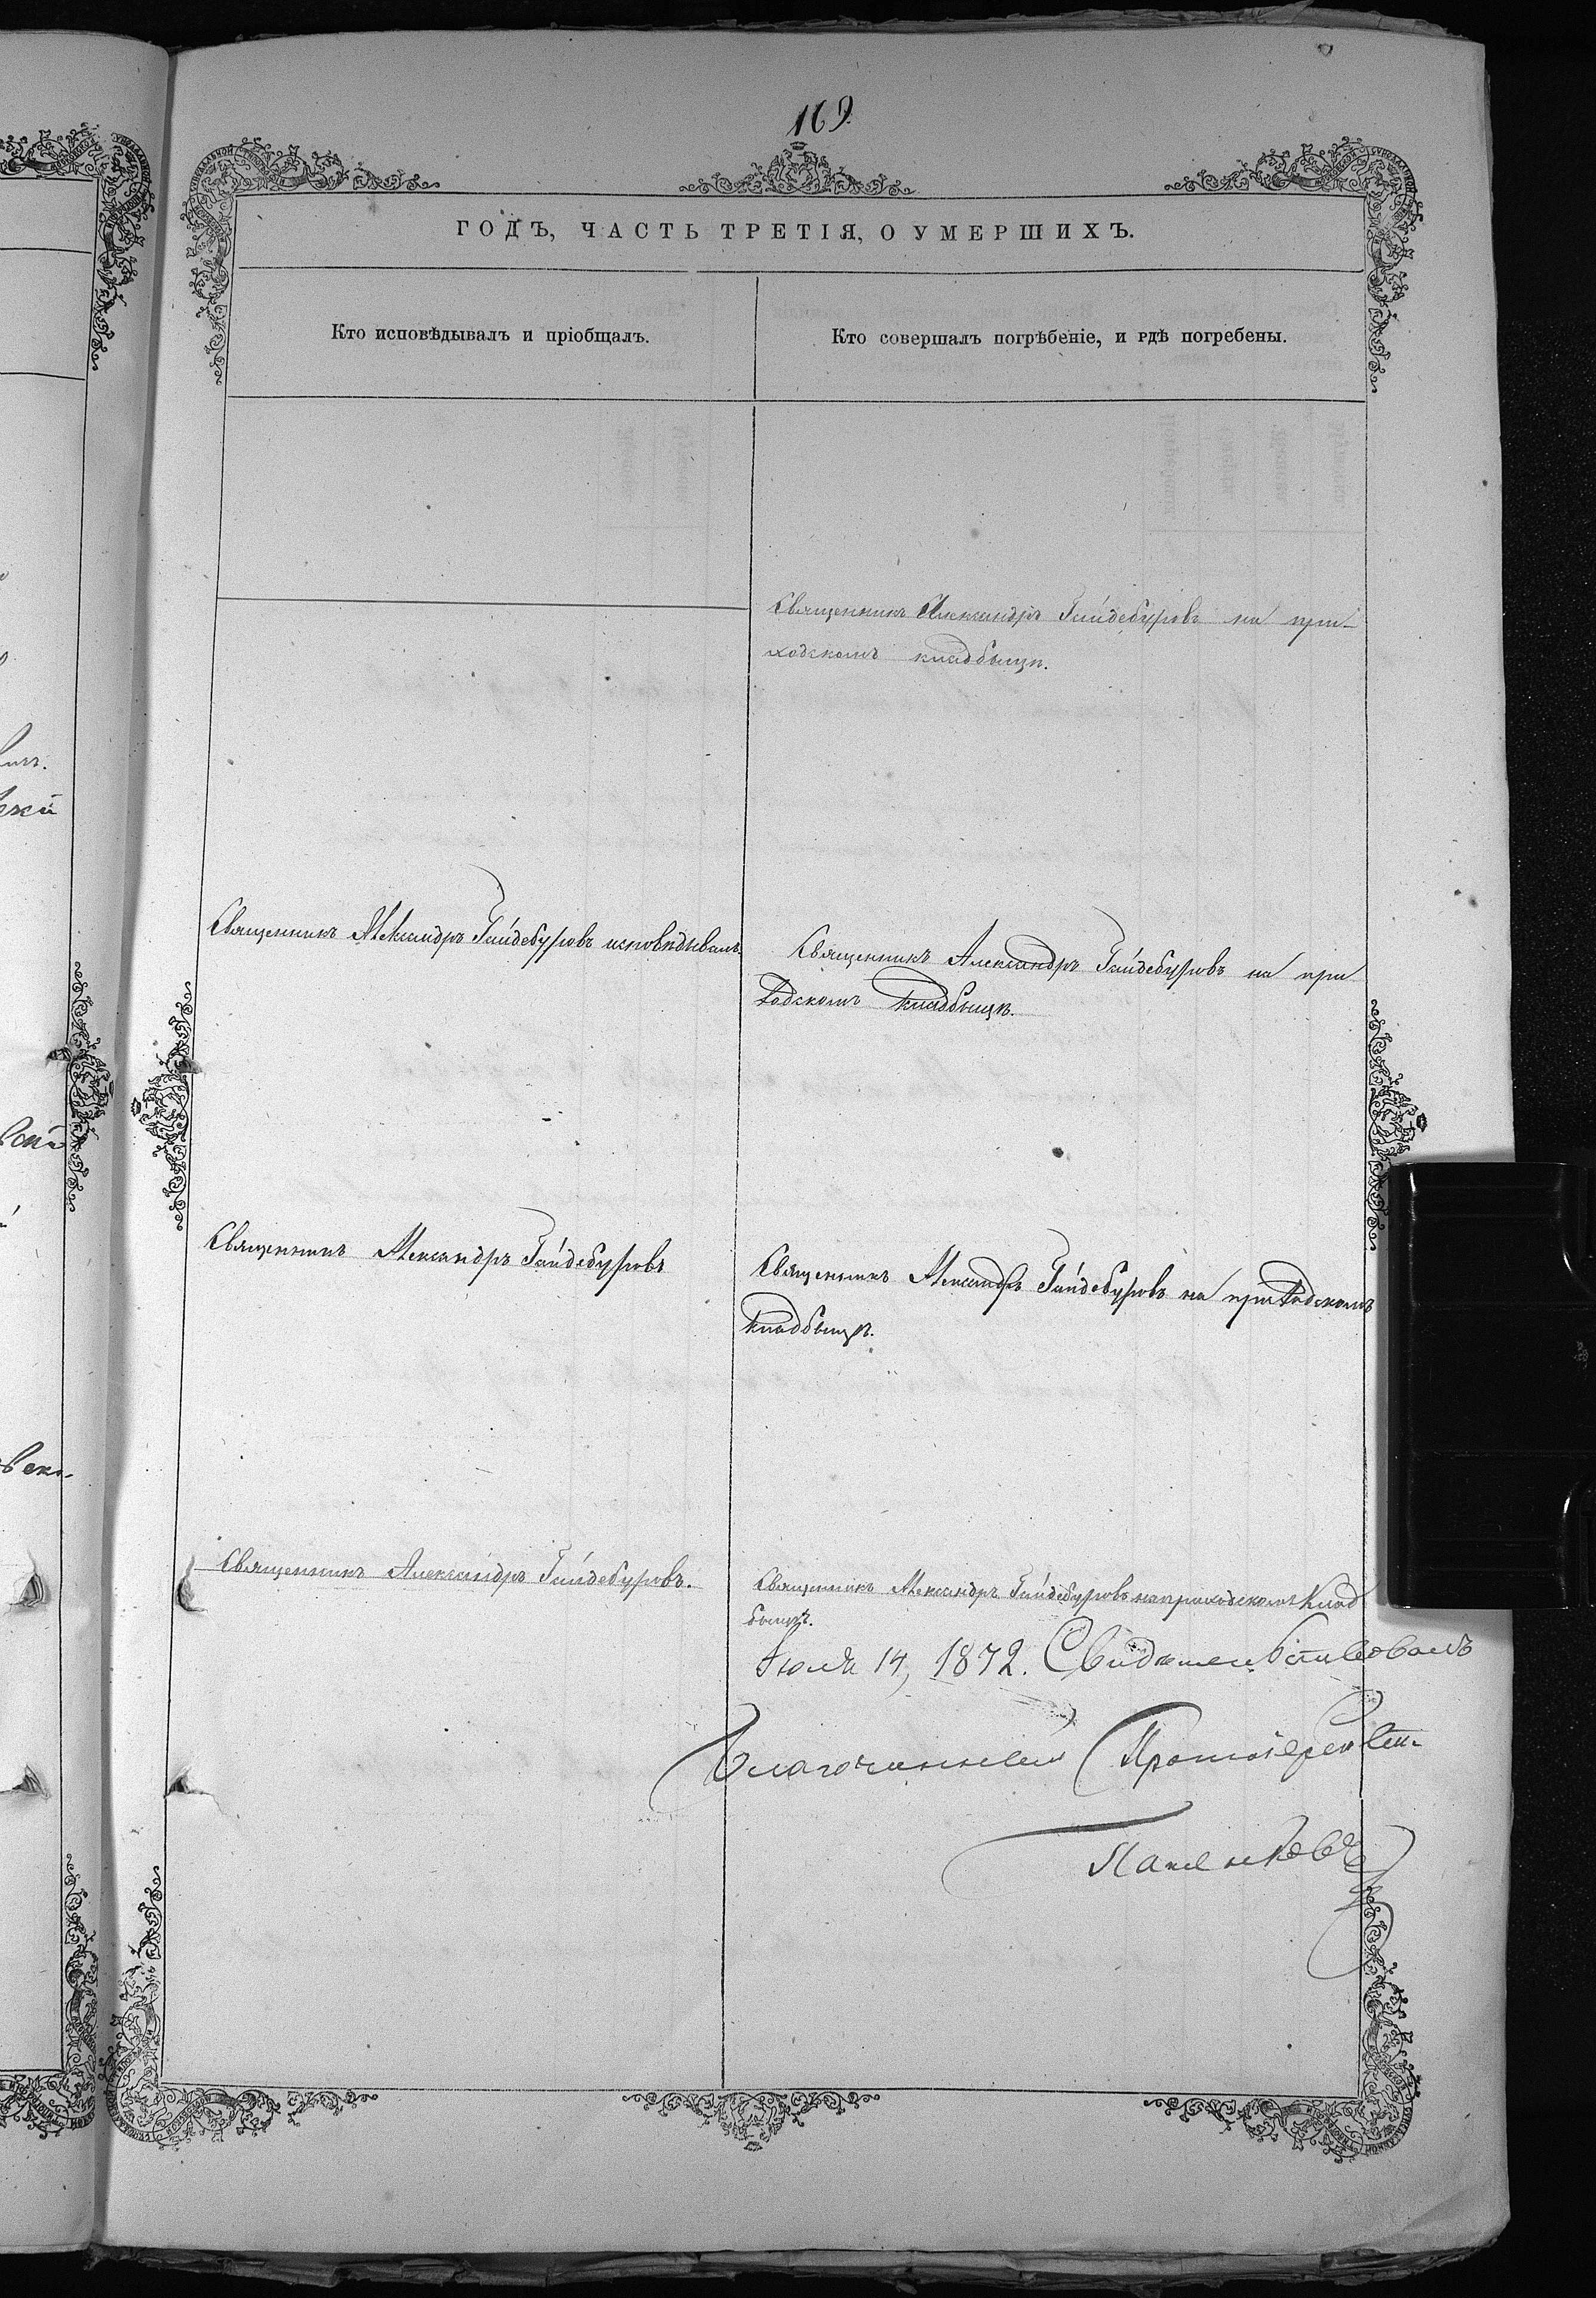 169.
ГОДЪ, ЧАСТЬ ТРЕТІЯ, О УМЕРШИХЪ.
Кто исповѣдывалъ и пріобщалъ.
Кто совершалъ погрѣбеніе, и гдѣ погребены.
Священникъ Александръ Гайдебуровъ на при-
ходскомъ кладбищѣ.
Священникъ Александръ Гайдебуровъ исповѣдывалъ.
Священникъ Александръ Гайдебуровъ на при
ходскомъ кладбищѣ.
Священникъ Александръ Гайдебуровъ
Священникъ Александръ Гайдебуровъ на приходскомъ
кладбищѣ.
Священникъ Александръ Гайдебуровъ.
Священникъ Александръ Гайдебуровъ на приходскомъ клад
бищѣ.
Іюля 14, 1872. Свидѣтельствовалъ
Благочинный Протоіерей